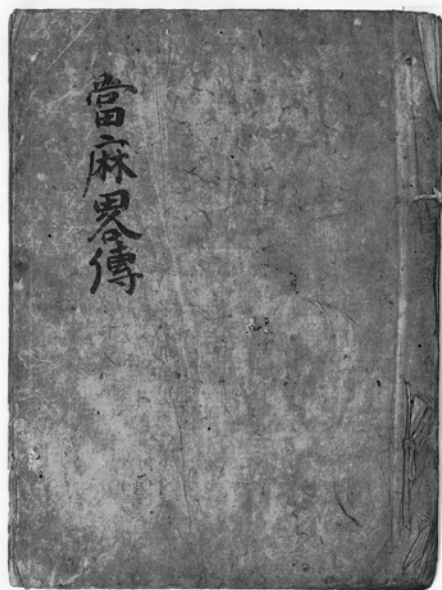 當麻畧傳